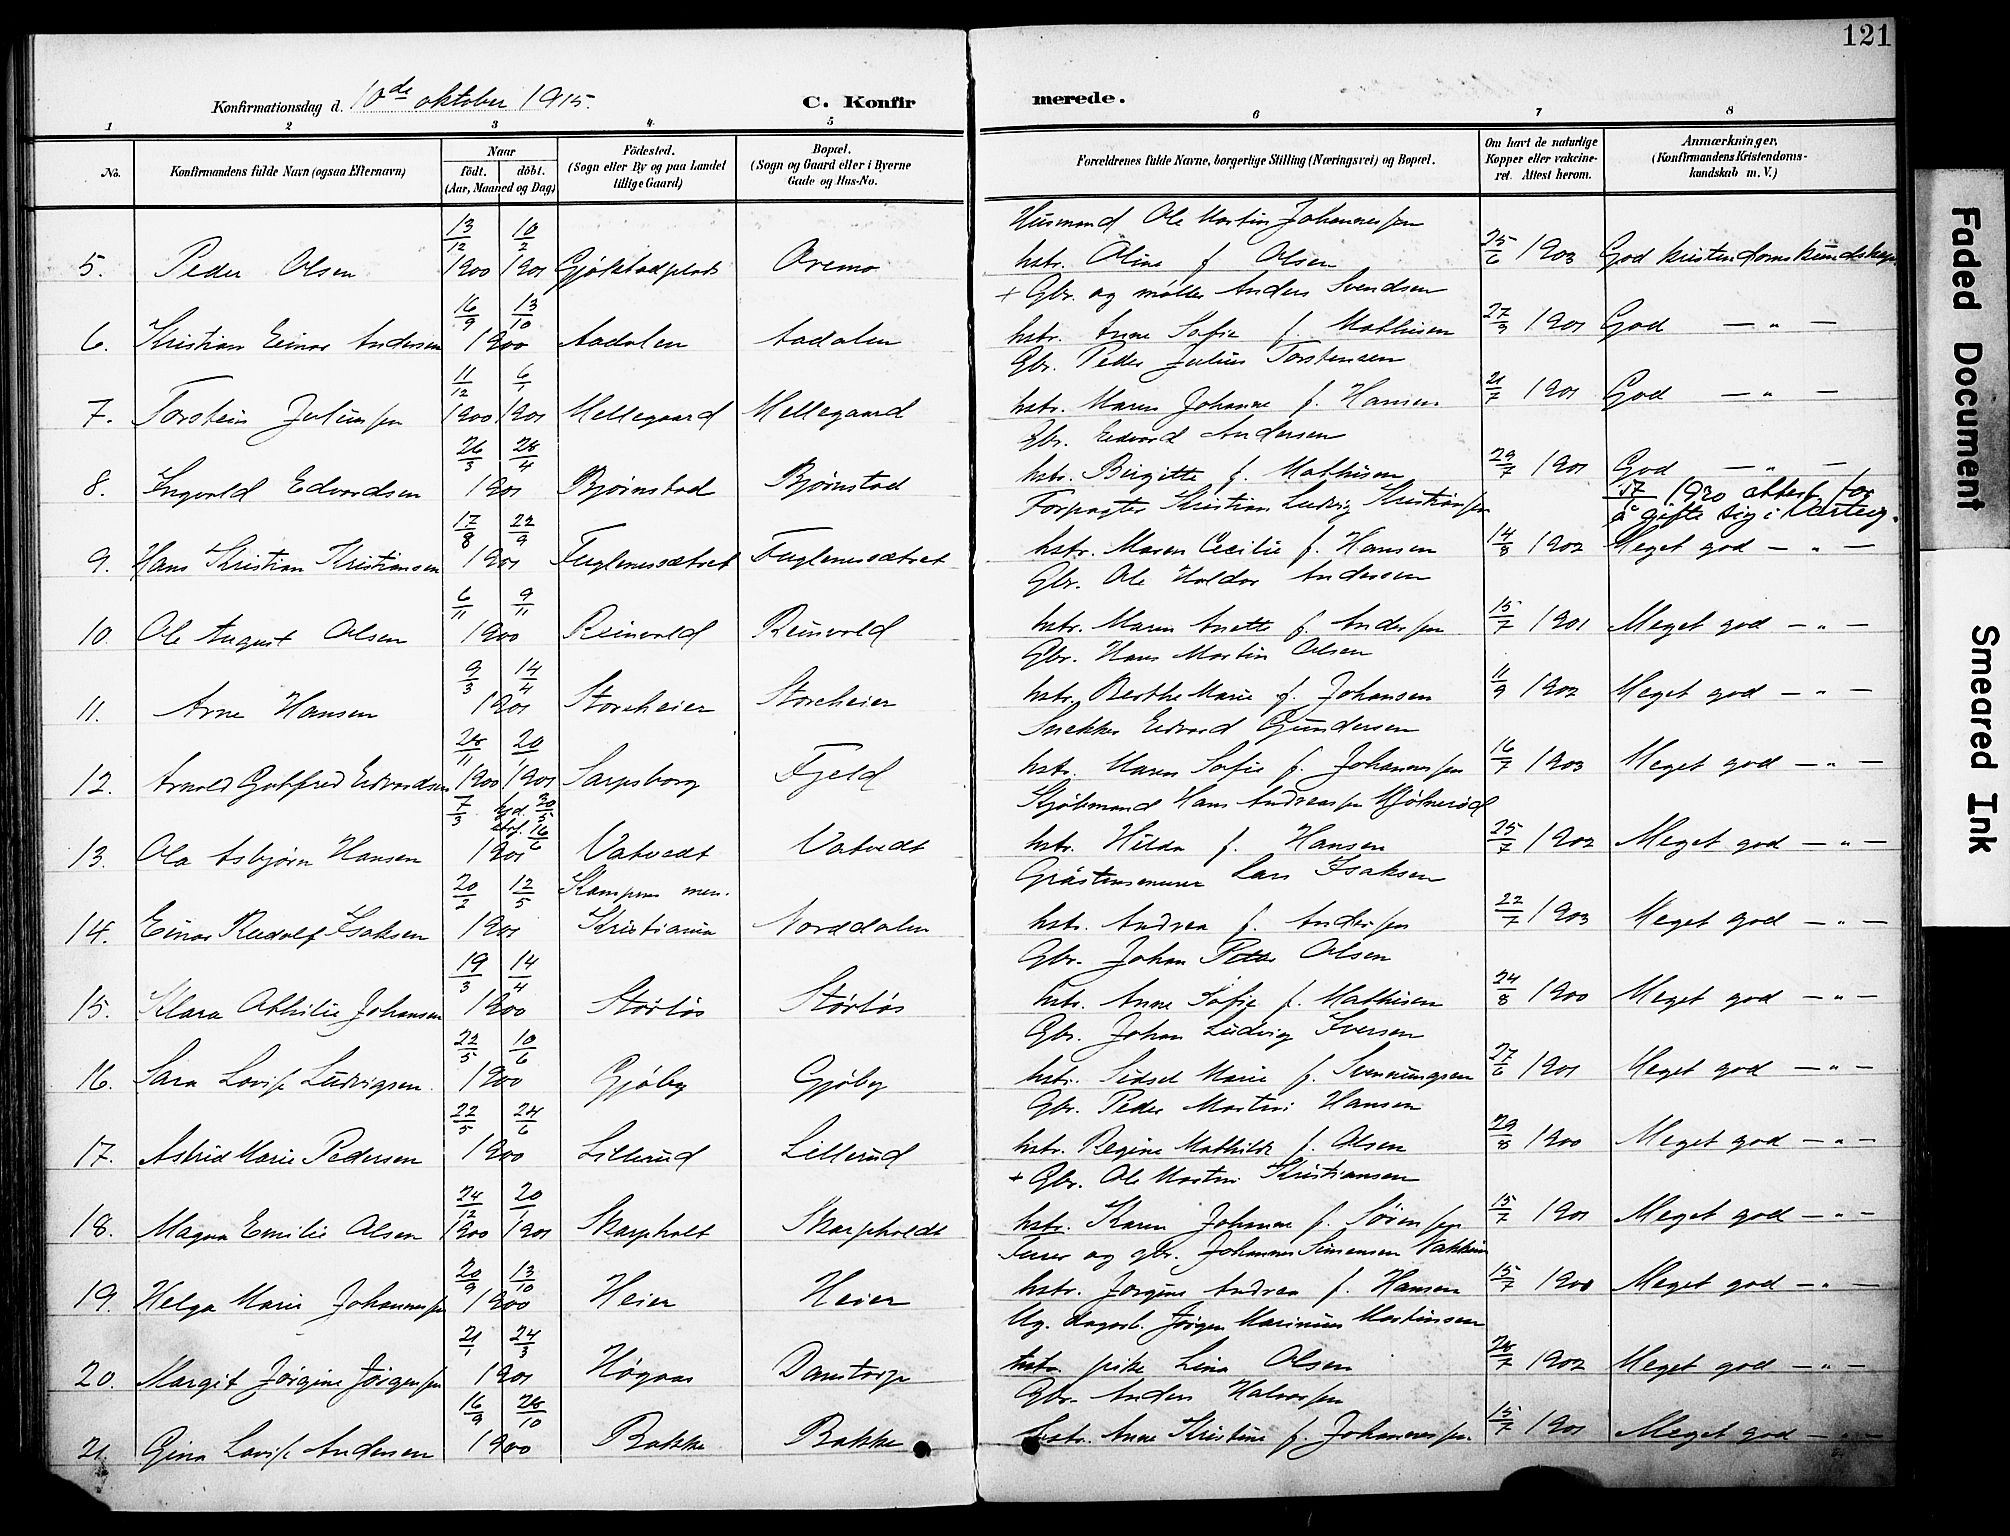 121
Konfirmationsdag d. 10de oktober 1915.
C. Konfirmerede.
1 2 3 4. 5 6 7 8
No.
Konfirmandens fulde Navn (ogsaa Efternavn)
Naar
født. døbt.
(Aar, Maaned og Dag)
Fødested.
(Sogn eller By og paa Landet
tillige Gaard)
Bopæl.
(Sogn og Gaard eller i Byerne
Gade og Hus-No.
Forældrenes fulde Navne, borgerlige Stilling (Næringsvei) og Bopæl.
Om havt de naturlige
Kopper eller vakcine-
ret. Attest herom.
Anmærkninger.
(Konfirmandens Kristendoms-
kundskab m. V.)
13/12 10/2 Husmand Ole Martin Johannessen
5. Peder Olsen 1900 1901 Gjøkstadplads Oremo hstr. Oline f. Olsen 25/6 1903 God kristendomskundskap.
16/9 13/10 + Gbr. og møller Anders Svendsen
6. Kristian Einar Andersen 1900 Aadalen Aadalen hstr. Anne Sofie f. Mathisen 27/9 1901 God — „ —
11/12 6/1 Gbr. Peder Julius Torstensen
7. Torstein Juliussen 1900 1901 Mellegaard Mellegaard hstr. Maren Johanne f. Hansen 21/7 1901 God — „ —
26/3 28/4 Gbr. Edvard Andersen
8. Ingvald Edvardsen 1901 Bjørnstad Bjørnstad hstr. Birgitte f. Mathisen 29/7 1901 God — „ —
17/8 22/9 Forpagter Kristian Ludvig Kristiansen 1930 attest for
å gifte sig i Varteig.
9. Hans Kristian Kristiansen 1901 Fuglenessætret Fuglenessætret hstr. Maren Cecilie f. Hansen 14/8 1902 Meget god — „ —
6/11 9/11 Gbr. Ole Haldor Andersen
10. Ole August Olsen 1900 Reinvold Reinvold hstr. Maren Anette f. Anderssen 15/7 1901 Meget god — „ —
9/3 14/4 Gbr. Hans Martin Olsen
11. Arne Hansen 1901 Storeheier Storeheier hstr. Berthe Marie f. Johansen 11/9 1902 Meget god — „ —
28/11 20/1 Snekker Edvard Gundersen
12. Arnold Gotfred Edvardsen 1900 1901 Sarpsborg Fjeld hstr. Maren Sofie f. Johannessen 16/7 1903 Meget god — „ —
7/3 16/6 Kjøbmand Hans Andreassen
13. Ola Asbjørn Hansen 1901 Vatvedt Vatvedt hstr. Hilda f. Hansen 25/7 1902 Meget god — „ —
20/2 12/5 Kampens men. Lars Isaksen
14. Einar Rudolf Isaksen 1901 Kristiania Norddalen hstr. Andrea f. Anderssen 22/7 1903 Meget god — „ —
19/3 14/4 Gbr. Johan Peter Olsen
15. Klara Othilie Johansen 1900 Størløs Størløs hstr. Anne Sofie f. Mathisen 24/8 1900 Meget god — „ —
22/5 10/6 Gbr. Johan Ludvig Iversen
16. Sara Lovise Ludvigsen. 1900 Gjøby Gjøby hstr. Sidsel Marie f. Svenningsen 27/6 1901 Meget god — „ —
22/5 24/6 Gbr. Peder Martin Hansen
17. Astrid Marie Pedersen 1900 Lillerud Lillerud hstr. Regine Mathilde f. Olsen 29/8 1900 Meget god — „ —
24/12 20/1 + Gbr. Ole Martin Kristiansen
18. Magna Emilie Olsen 1900 1901 Skarpholt Skarpholdt hstr. Karen Johanne f. Sørenssen 15/7 1901 Meget god — „ —
20/9 13/10 og gbr. Johannes Simensen
19. Helga Marie Johannessen 1900 Heier Heier hstr. Jørgine Andrea f. Hansen 15/7 Meget god — „ —
21/1 24/3 Ug. dagarb. Jørgen Marinius Martinsen
20. Margit Jørgine Jørgenssen 1901 Høgaas Danstorp pike Lina Olsen 28/7 1902 Meget god — „ —
16/9 28/10 Gbr. Anders Halvorssen
21. Gina Lovise Andersen 1900 Bakke Bakke hstr. Anne Kristine f. Johannessen 15/7 1901 Meget god — „ —
Faded Document
Smeared Ink